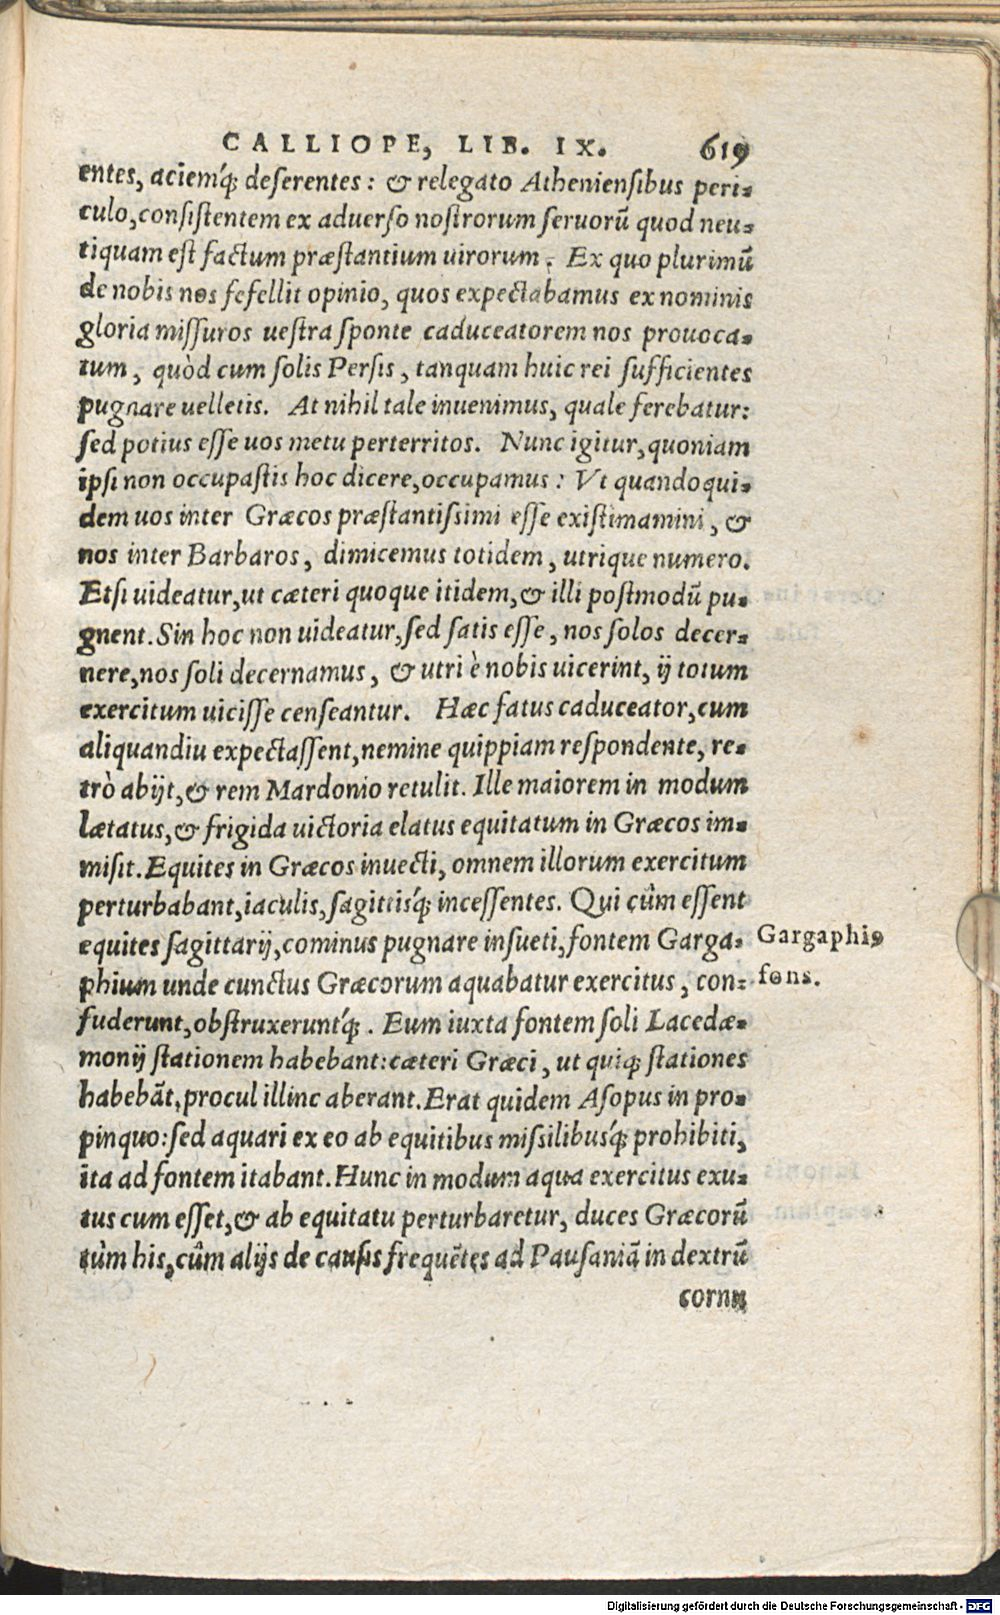 CALLIOPE, LIB. IX. 619
entes, aciemq́; deserentes: & relegato Atheniensibus peri-
culo, consistentem ex aduerso nostrorum seruorũ quod neu-
tiquam est factum præstantium uirorum. Ex quo plurimũ
de nobis nos fefellit opinio, quos expectabamus ex nominis
gloria missuros uestra sponte caduceatorem nos prouoca-
tum, quòd cum solis Persis, tanquam huic rei sufficientes
pugnare uelletis. At nihil tale inuenimus, quale ferebatur:
sed potius esse uos metu perterritos. Nunc igitur, quoniam
ipsi non occupastis hoc dicere, occupamus: Vt quandoqui-
dem uos inter Græcos præstantissimi esse existimamini, &
nos inter Barbaros, dimicemus totidem, utrique numero.
Etsi uideatur, ut cæteri quoque itidem, & illi postmodũ pu-
gnent. Sin hoc non uideatur, sed satis esse, nos solos decer-
nere, nos soli decernamus, & utri è nobis uicerint, ij totum
exercitum uicisse censeantur. Hæc fatus caduceator, cum
aliquandiu expectassent, nemine quippiam respondente, re-
trò abijt, & rem Mardonio retulit. Ille maiorem in modum
lætatus, & frigida uictoria elatus equitatum in Græcos im-
misit. Equites in Græcos inuecti, omnem illorum exercitum
perturbabant, iaculis, sagittisq́; incessentes. Qui cûm essent
equites sagittarij, cominus pugnare insueti, fontem Garga-
phium unde cunctus Græcorum aquabatur exercitus, con-
fuderunt, obstruxeruntq́;. Eum iuxta fontem soli Lacedæ-
monij stationem habebant: cæteri Græci, ut quiq; stationes
habebãt, procul illinc aberant. Erat quidem Asopus in pro-
pinquo: sed aquari ex eo ab equitibus missilibusq́; prohibiti,
ita ad fontem itabant. Hunc in modum aqua exercitus exu-
tus cum esset, & ab equitatu perturbaretur, duces Græcorũ
tùm his, cûm alijs de causis frequẽtes ad Pausaniã in dextrũ
cornu
Gargaphi9
fons.
Digitalisierung gefördert durch die Deutsche Forschungsgemeinschaft - DFG